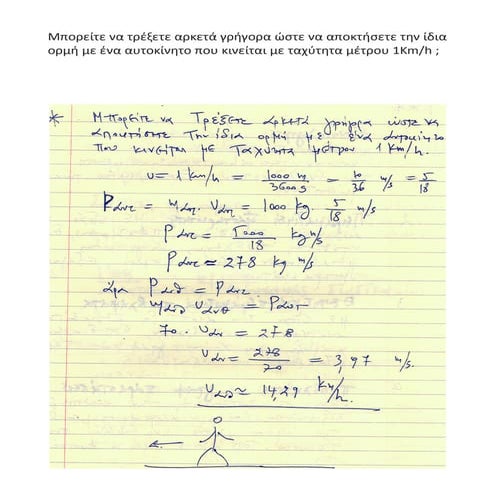 Μπορείτε να τρέξετε αρκετά γρήγορα ώστε να αποκτήσετε την ίδια
ορμή με ένα αυτοκίνητο που κινείται με ταχύτητα μέτρου 1Km/h ;
* Μπορείτε να Τρέξετε αρκετά γρήγορα ώστε να
αποκτήσετε Την ίδια ορμή με ένα αυτοκίνητο
που κινείται με Ταχύτητα μέτρου 1 Km/h.
υ = 1 Km/h = 1000 m / 3600 s = 10/36 m/s = 5/18
Pαυτ = mαυτ . υαυτ = 1000 kg . 5/18 m/s
Pαυτ = 5000/18 kg m/s
Pαυτ ≈ 278 kg m/s
άρα Pανθ = Pαυτ
mανθ υανθ = Pαυτ
70 . υαν = 278
υαν = 278/70 = 3,97 m/s.
υανθ ≈ 14,29 Km/h